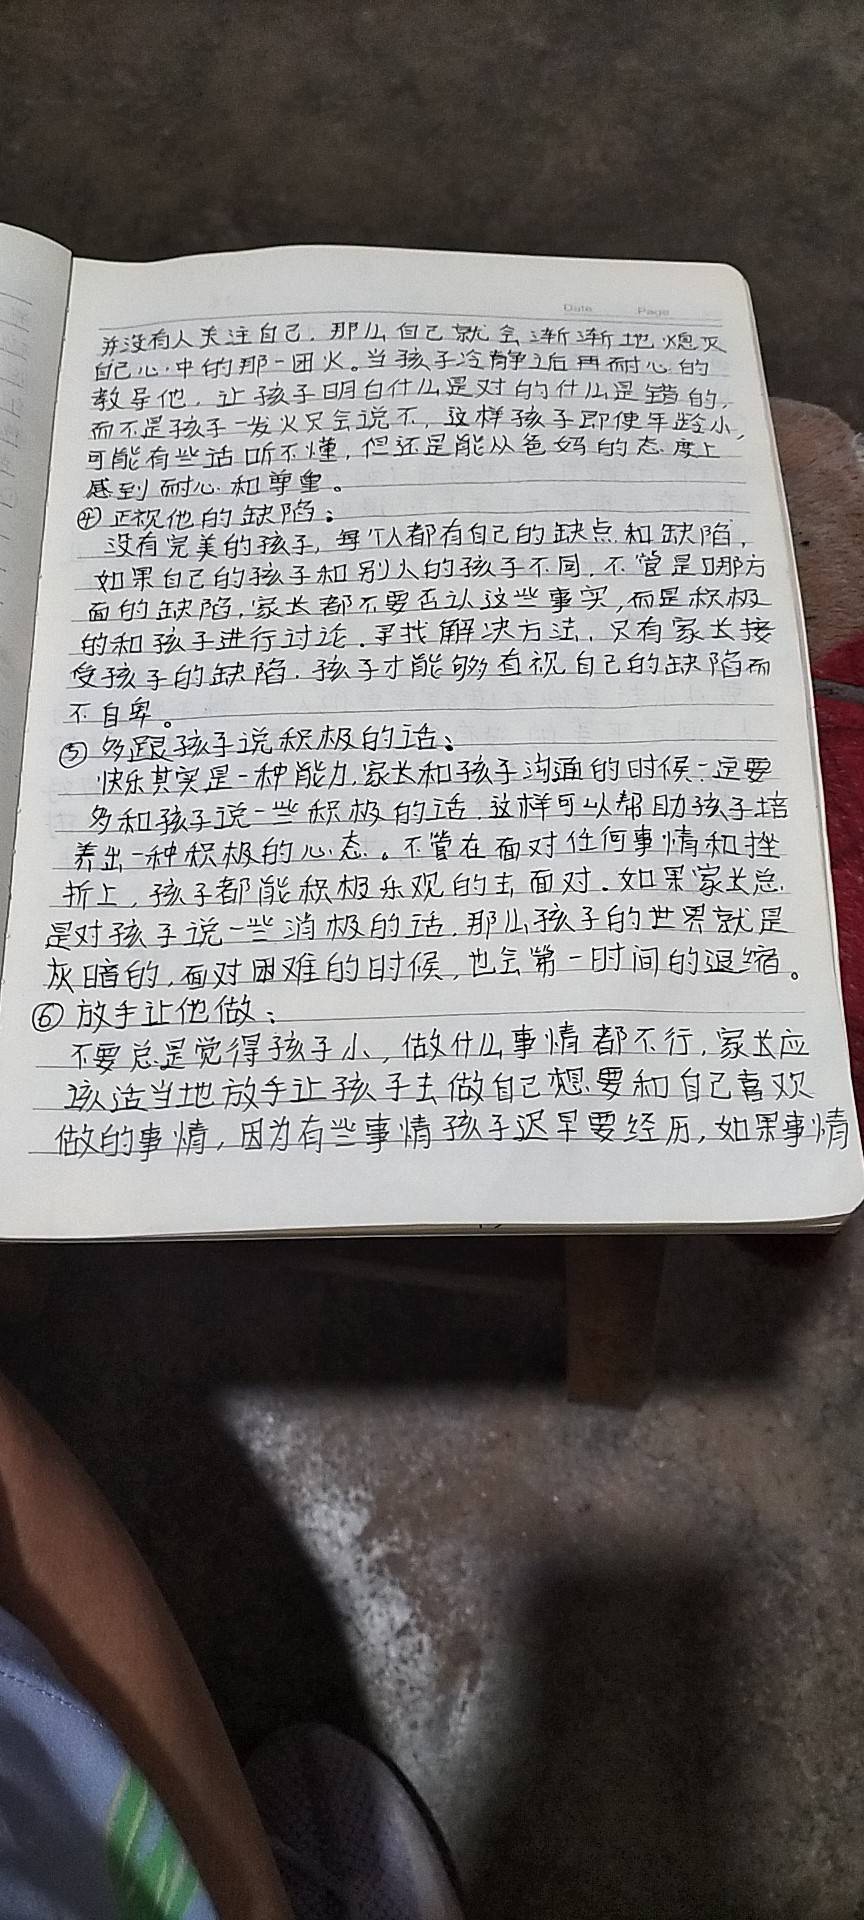 Date Page
并没有人关注自己，那么自己就会渐渐地熄灭
自己心中的那一团火。当孩子冷静之后再耐心的
教导他，让孩子明白什么是对的什么是错的，
而不是孩子一发火只会说不，这样孩子即使年龄小，
可能有些话听不懂，但还是能从爸妈的态度上
感到耐心和尊重。
④正视他的缺陷：
没有完美的孩子，每个人都有自己的缺点和缺陷，
如果自己的孩子和别人的孩子不同，不管是哪方
面的缺陷，家长都不要否认这些事实，而是积极
的和孩子进行讨论，寻找解决方法，只有家长接
受孩子的缺陷，孩子才能够直视自己的缺陷而
不自卑。
⑤多跟孩子说积极的话：
快乐其实是一种能力，家长和孩子沟通的时候一定要
多和孩子说一些积极的话，这样可以帮助孩子培
养出一种积极的心态。不管在面对任何事情和挫
折上，孩子都能积极乐观的去面对。如果家长总
是对孩子说一些消极的话，那么孩子的世界就是
灰暗的，面对困难的时候，也会第一时间的退缩。
⑥放手让他做：
不要总是觉得孩子小，做什么事情都不行，家长应
该适当地放手让孩子去做自己想要和自己喜欢
做的事情，因为有些事情孩子迟早要经历，如果事情